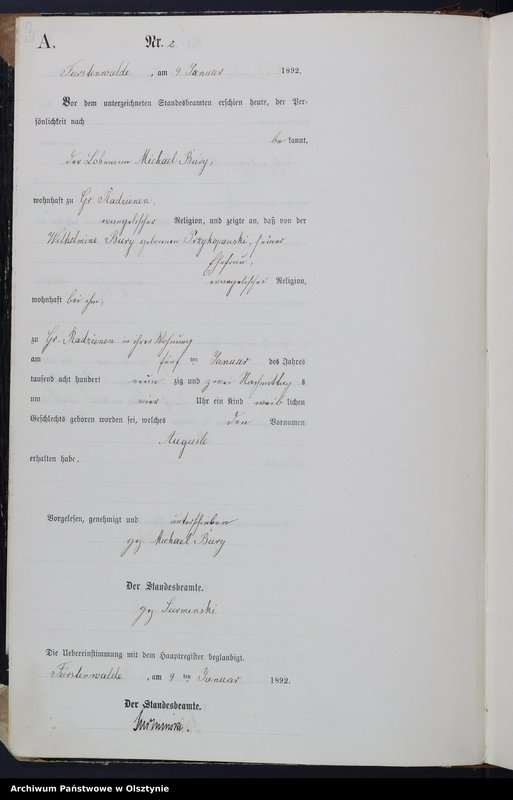 A. Nr. 2.
Fürstenwalde, am 9. Januar 1892.
Vor dem unterzeichneten Standesbeamten erschien heute, der Per-
sönlichkeit nach
be kannt,
der Losmann Michael Bury,
wohnhaft zu Gr. Radzienen,
evangelischer Religion, und zeigte an, daß von der
Wilhelmine Bury geborenen Przykopanski, seiner
Ehefrau,
evangelischer Religion,
wohnhaft bei ihm,
zu Gr. Radzienen in ihrer Wohnung
am fünf ten Januar des Jahres
tausend acht hundert neun zig und zwei Nachmittag s
um vier Uhr ein Kind weib lichen
Geschlechts geboren worden sei, welches den Vornamen
Auguste
erhalten habe.
Vorgelesen, genehmigt und unterschrieben
gez. Michael Bury
Der Standesbeamte.
gez. Surminski
Die Uebereinstimmung mit dem Hauptregister beglaubigt.
Fürstenwalde, am 9 ten Januar 1892.
Der Standesbeamte.
Surminski.
Archiwum Państwowe w Olsztynie